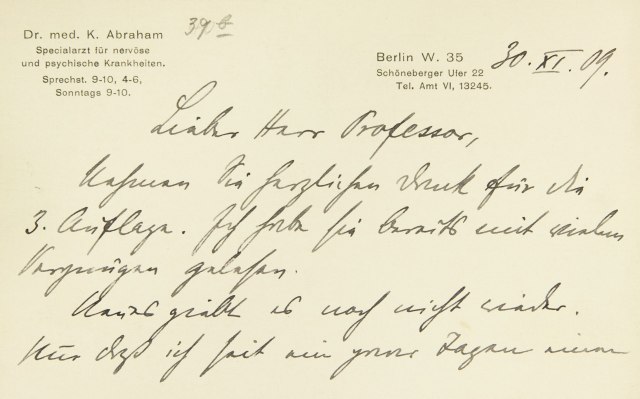 Dr. med. K. Abraham
Specialarzt für nervöse
und psychische Krankheiten.
Sprechst. 9-10, 4-6,
Sonntags 9-10.
39
Berlin W. 35
Schöneberger Ufer 22
Tel. Amt VI, 13245.
30. XI. 09.
Lieber Herr Professor,
Nehmen Sie herzlichen Dank für die
3. Auflage. Ich habe sie bereits mit vielem
Vergnügen gelesen.
Neues giebt es noch nicht wieder.
Nur daß ich seit ein paar Tagen einen